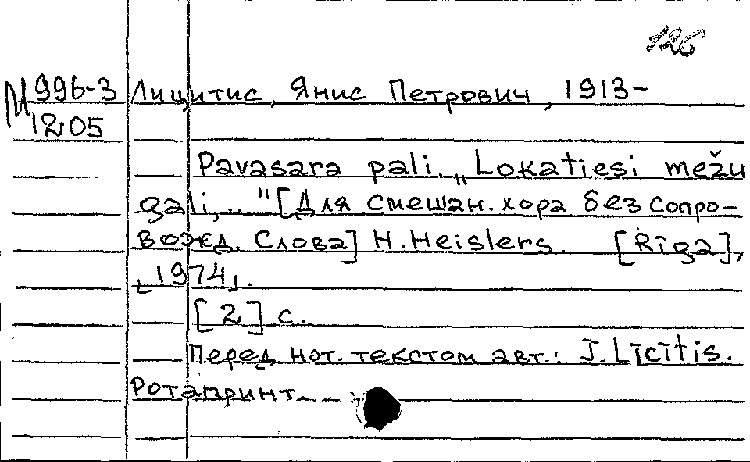 126
М 996-3
1205
Лицитис, Янис Петрович, 1913-
Pavasara pali. „Lokatiesi mežu
gali,.." [Для смешан. хора без сопро-
вожд. Слова] H. Heislers. [Rīga],
[1974].
[2] с.
Перед нот. текстом авт.: J. Līcītis.
Ротапринт